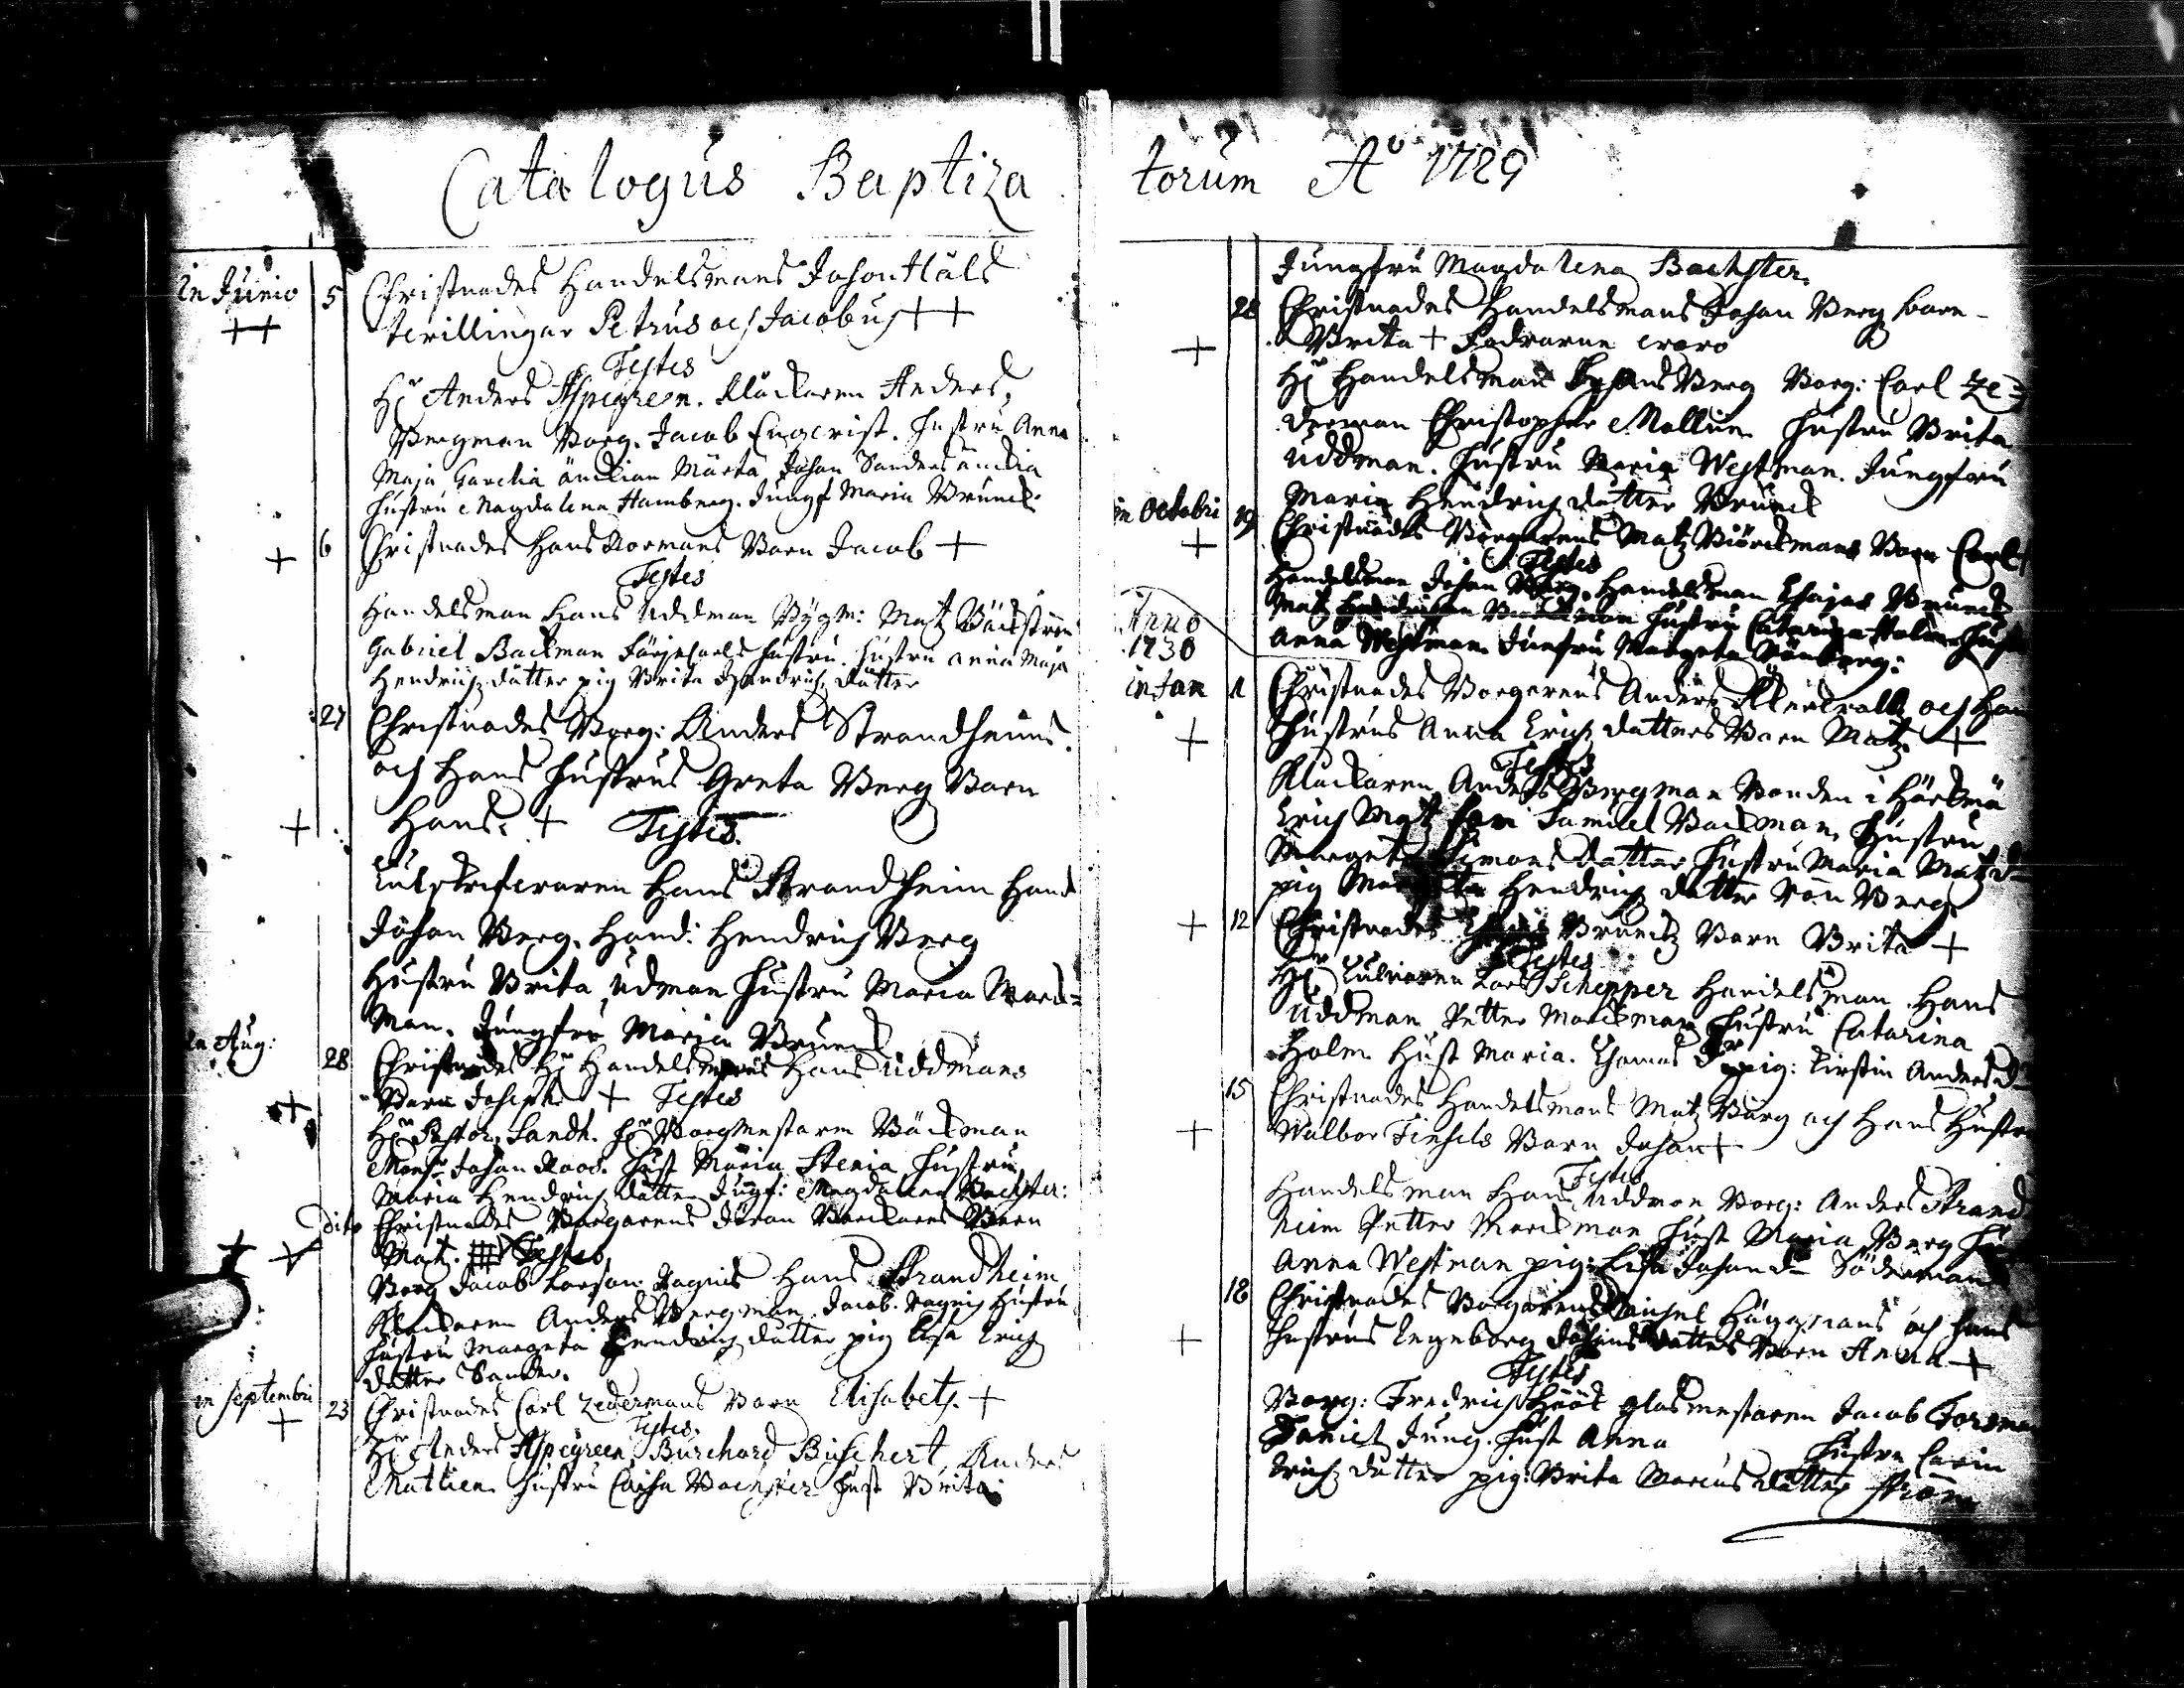 Catalogus Baptiza
in Junio 5 Christnades Handelsmans Johan Häls
++ tvillingar Petrus och Jacobus ++
Testes
Hr Anders Aspegreen. Klåckaren Anders
Bergman Borg. Jacob Engqvist. Hustru Anna
Maja änckian Märta Johan Sanders änckia
Hustru Magdalena Hamberg. Jungf Maria Brunck
+ 6 Christnades Hans Kormans Barn Jacob +
Testes
Handelsman Hans Uddman Bygm: Matz Bäckström
Gabriel Backman hustru. Hustru Anna Maja
Hendrichz dåtter pig Brita Hendrichz dåtter
27 Christnades Borg: Anders Strandheims
och Hans Hustrus Greta Berg Barn
+ Hans. + Testes.
Hans Strandheim Hand
Johan Berg. Hand: Hendrich Berg
Hustru Brita Udman Hustru Maria Marck=
man. Jungfru Maria Brunck
in Aug: 28 Christnades Hr Handelsmans Hans Uddmans
+ Barn Joseph + Testes
Hr Pastor Sandh. Hr Borgmestaren Bäckman
Mons: Johan Roos. Hust Maria Stenia Hustru
Maria Hendrichz dåtter Jungf: Magdalena Bachster:
dito Christnades Borgarens Jöran Barn
+ Mat. Testes
Borg Jacob Larson Hans Strandheim
Klåckaren Anders Bergman. Jacob Hustru
Hustru Margeta Hendrichz dåtter pig Lisa Erich
dåtter Sander.
in Septembri 23 Christnades Carl Zedermans Barn Elisabeth. +
+ Testes.
Hr Anders Aspegreen Burchard Buschert, Anders
Mathien Hustru Caisa Bachster Hust Brita
torum Ao 1729
Jungfru Magdalena Bachster.
28 Christnades Handelsmans Johan Berg barn
+ Brita + Fadrarne woro
Hr Handelsman Berg Borg: Carl Ze=
derman Christopher Mollien Hustru Brita
Uddman. Hustru Maria Westman. Jungfru
Maria Hendrichz dåtter Brunck
in Octobri 19 Christnades Borgarens Matz Biörckmans Barn Carl +
+ Testes
Handelsman Johan Berg. Handelsman Brunck
Matz Hustru Catarina Holm Hust
Anna Westman Junfru Margeta
Anno
1730
in Jan 1 Christnades Borgarens Anders och Hans
+ Hustrus Anna Erichz dåtters Barn Matz +
Testes
Klåckaren Anders Bergman Bonden i Härkmä
Erich Matz son Samuel Backman Hustru
Margeta Simons dåtter Hustru Maria Matz d
pig Margeta Hendrichz dåtter Berg
+ 12 Christnades Bruncks Barn Brita +
Testes
Hr Lars Schepper Handelsman Hans
Uddman Petter Marckman Hustru Catarina
Holm Hust Maria. Thomas Dr pig: Kirstin Anders d
15 Christnades Handelsmans Matz Borg och Hans Hustru
+ Walbor Finkels Barn Johan +
Testes
Handelsman Hans Uddman Borg: Anders Strand
heim Petter Marckman Hust Maria Berg Hu
Anna Westman pig: Lisa Johans d Söderman
18 Christnades Borgarens Michel Häggmans och hans
+ Hustrus Ingeborg Johans dåtters Barn Anna +
Testes
Borg: Fredrich Höök glasmestaren Jacob Forsman
Daniel Jung. Hust Anna Hustru Carin
Erichz dåtter pig: Brita Marcus dåtter Ström